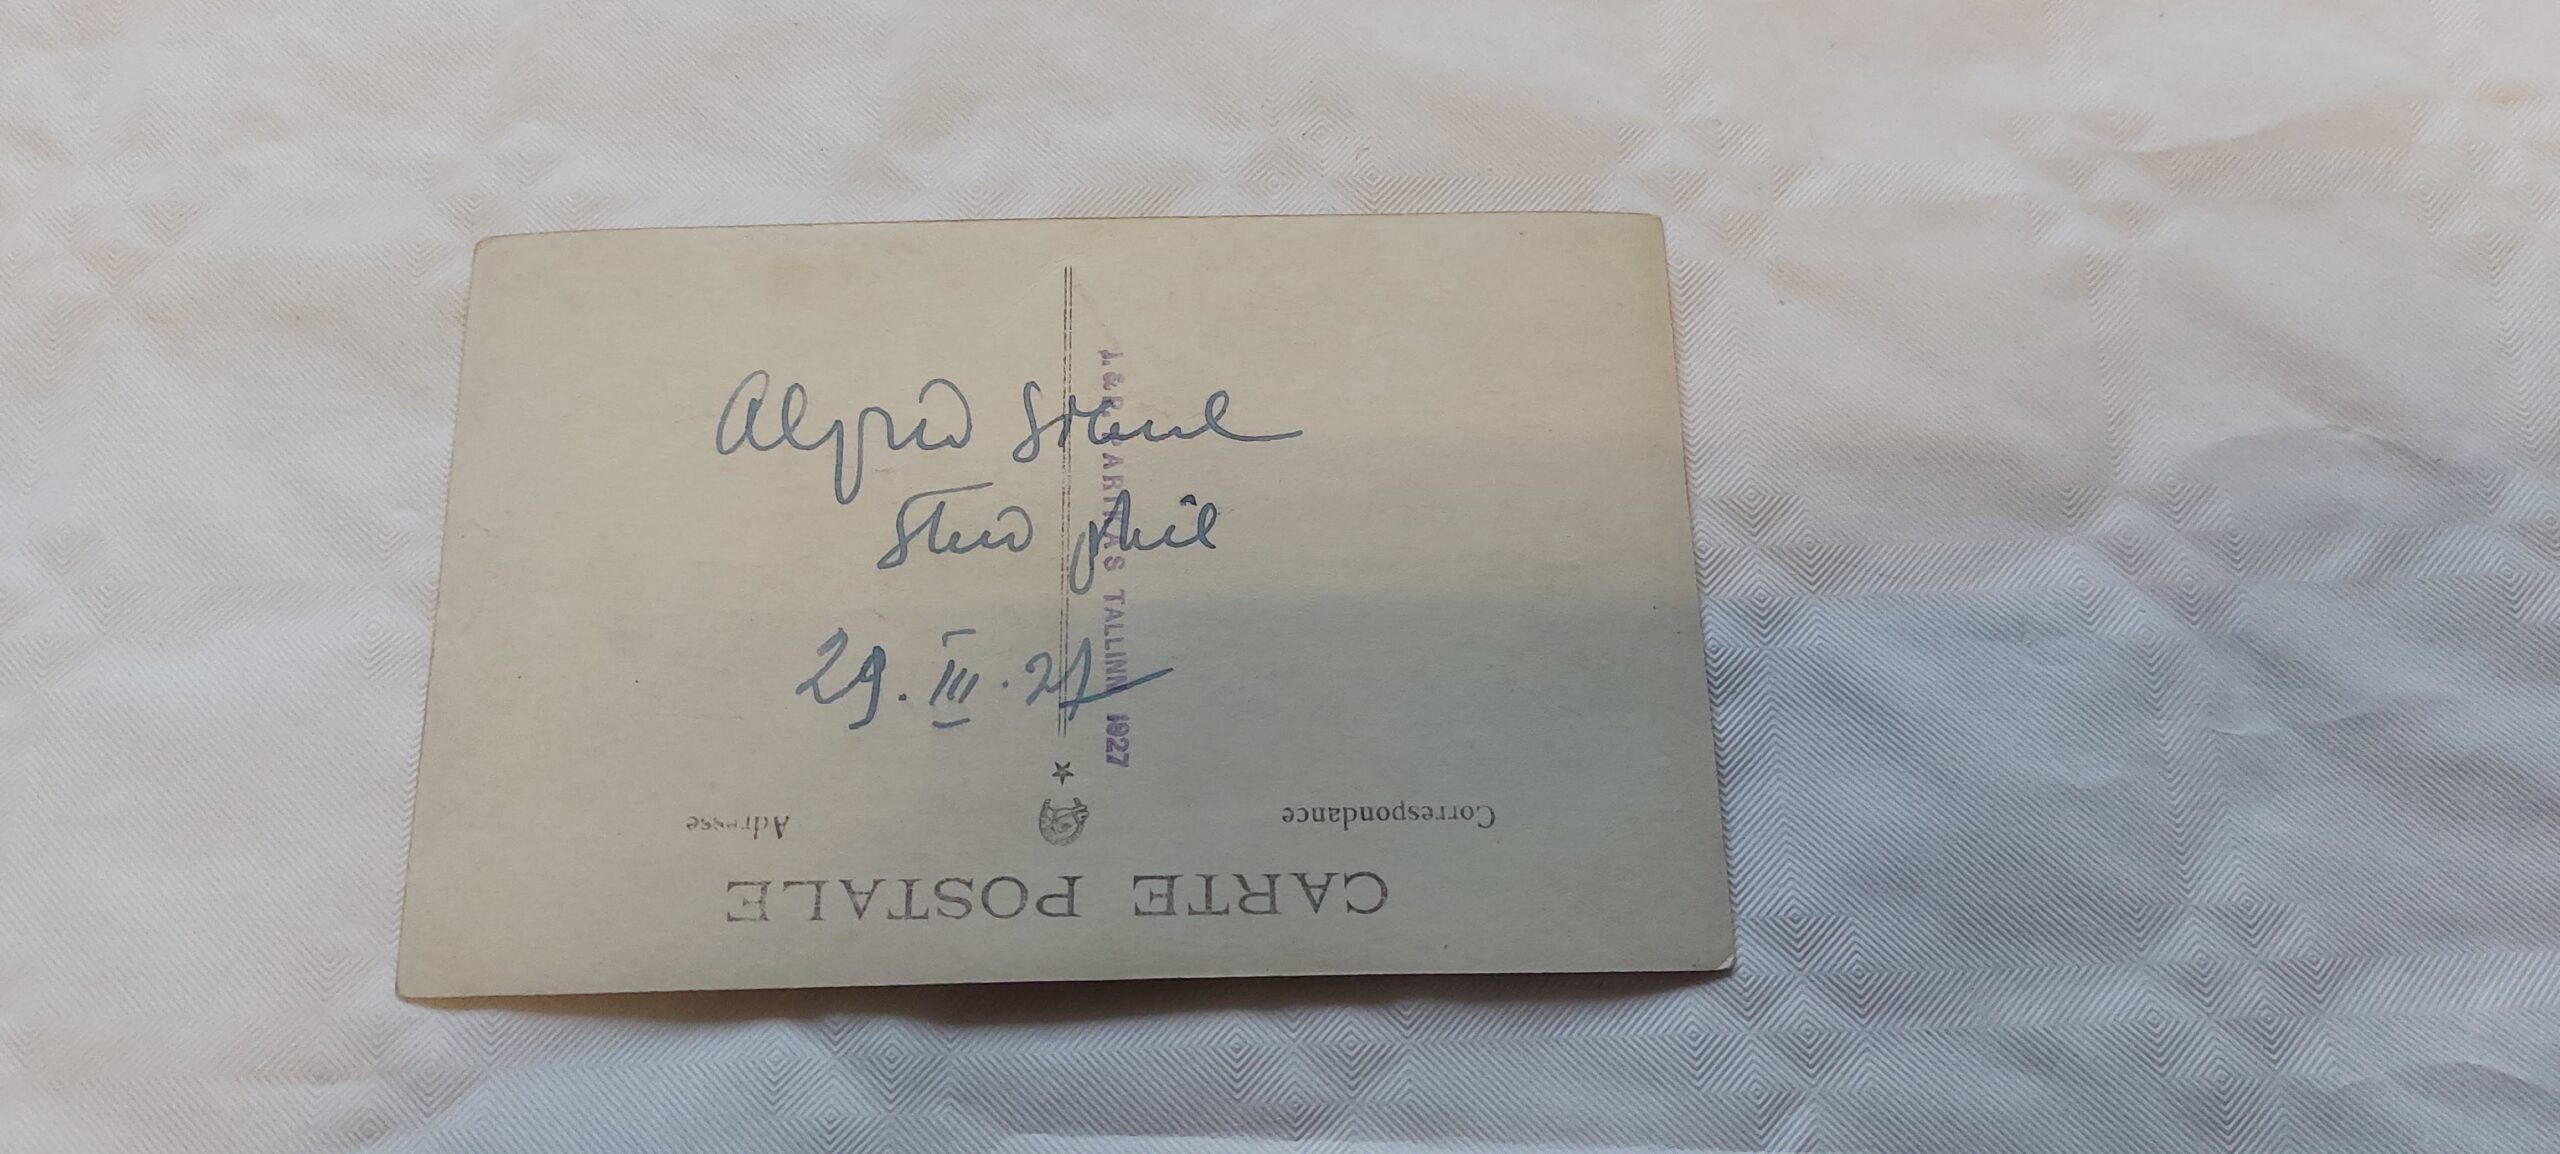 Alfred
stud phil
29. III. 27
J. & P. PARIKAS TALLINN 1927
Adresse
Correspondance
CARTE POSTALE